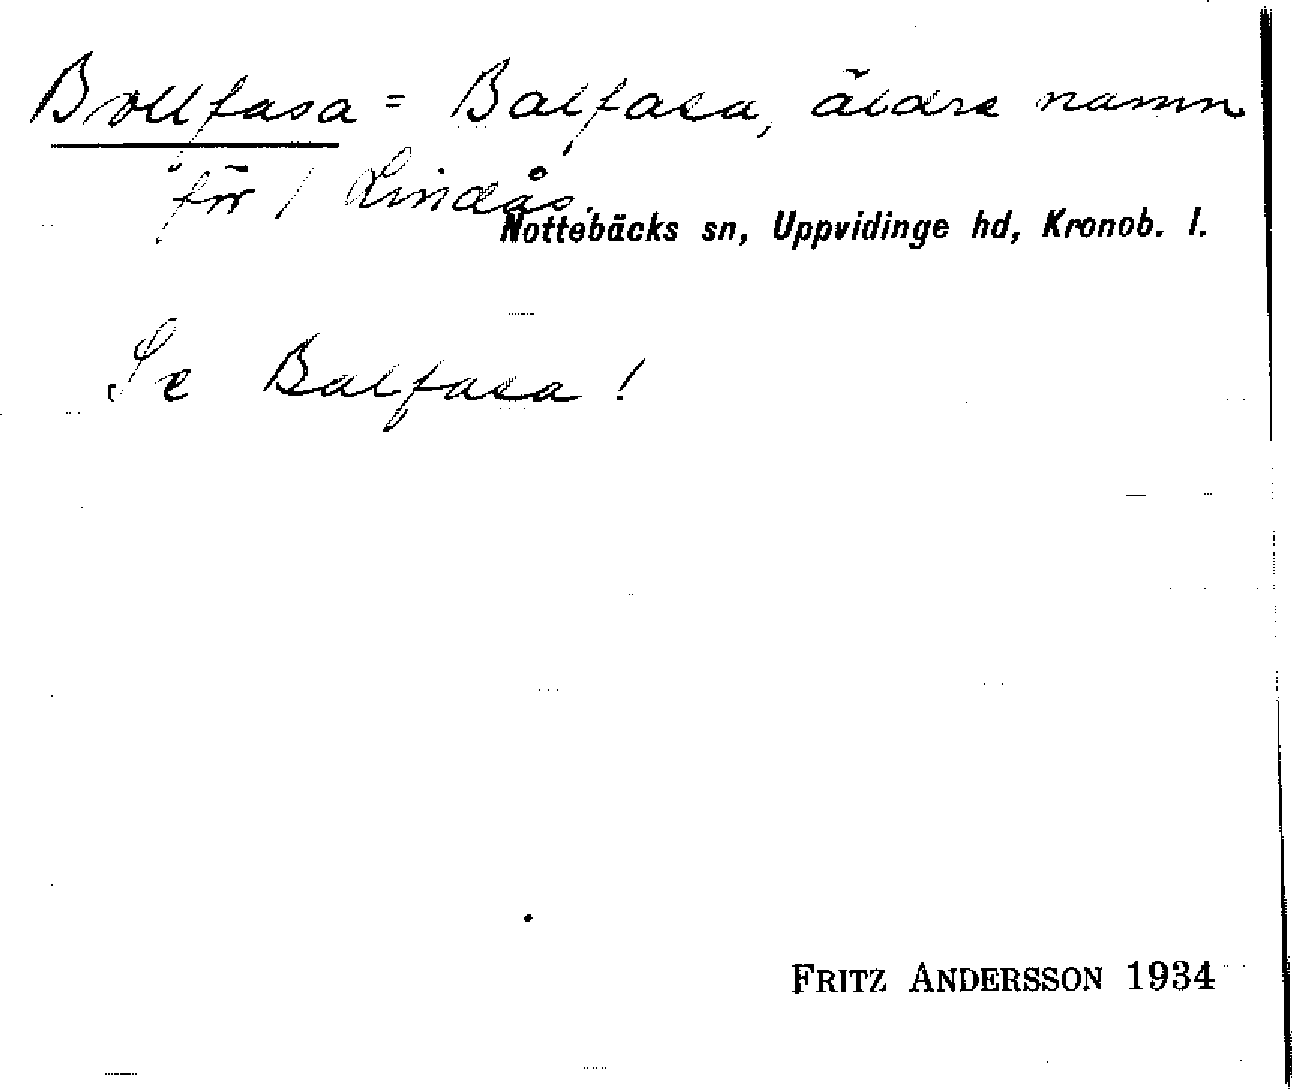 Bollfasa = Balfasa, äldre namn
för / Lindås.
Nottebäcks sn, Uppvidinge hd, Kronob. l.
Se Balfasa!
FRITZ ANDERSSON 1934